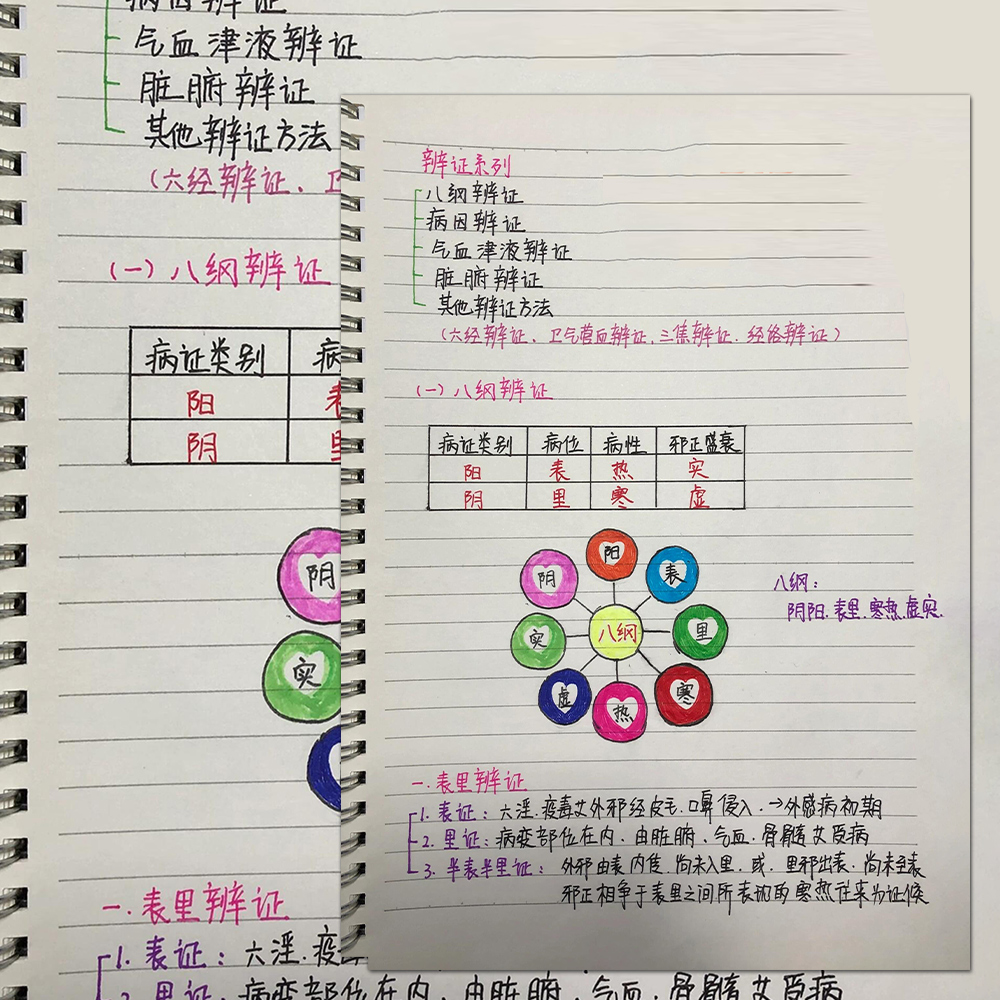 病因辨证
气血津液辨证
脏腑辨证
其他辨证方法
（六经辨证、卫
（一）八纲辨证
病证类别 病
阳 表
阴 里
阴
实
一.表里辨证
1.表证：六淫.疫
2.里证：病变部位在内.由脏腑.气血.骨髓
病
辨证系列
八纲辨证
病因辨证
气血津液辨证
脏腑辨证
其他辨证方法
（六经辨证、卫气营血辨证、三焦辨证.经络辨证）
（一）八纲辨证
病证类别 病位 病性 邪正盛衰
阳 表 热 实
阴 里 寒 虚
阳
阴 表
实 八纲 里
虚 热 寒
八纲：
阴阳.表里.寒热.虚实.
一.表里辨证
1.表证：六淫.疫毒 外邪经皮毛.口鼻侵入.→外感病初期
2.里证：病变部位在内.由脏腑.气血.骨髓 病
3.半表半里证：外邪由表内 .尚未入里.或.里邪出表.尚未至表
邪正相争于表里之间所表现的寒热往来为证候